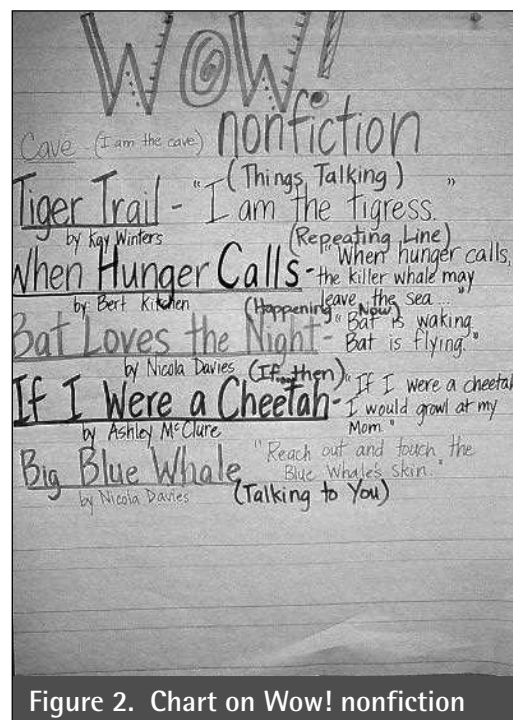 Wow!
nonfiction
Cave (I am the cave)
(Things Talking)
Tiger Trail - "I am the tigress."
by Kay Winters
(Repeating Line)
When Hunger Calls - "When hunger calls,
the killer whale may
leave the sea..."
by: Bert Kitchen
(Happening Now)
Bat Loves the Night - "Bat is waking.
Bat is flying."
by Nicola Davies
(If..then)
If I Were a Cheetah - "If I were a cheetah
I would growl at my
Mom."
by Ashley McClure
Big Blue Whale "Reach out and touch the
Blue Whale's skin."
by Nicola Davies
(Talking to You)
Figure 2. Chart on Wow! nonfiction